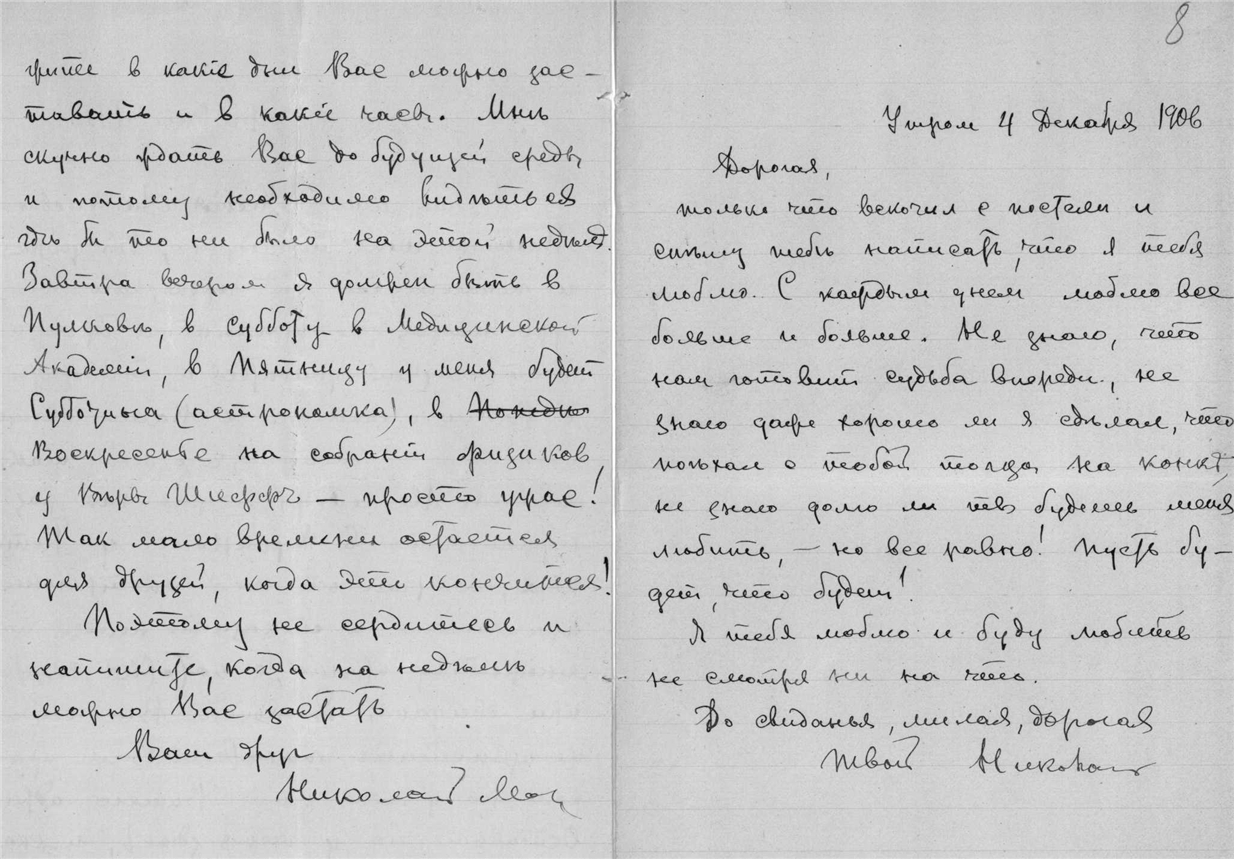 в какіе дни Вас можно зас-
тавать и в какіе часы. Мнѣ
скучно ждать Вас до будущей среды
и потому необходимо видѣться
гдѣ бы то ни было на этой недѣлѣ.
Завтра вечером я должен быть в
Пулковѣ, в субботу в Медицинской
Академіи, в Пятницу у меня будет
(астрономка), в
Воскресенье на собраніи физиков,
у Вѣры Шиффъ — просто ужас!
Так мало времени остается
для друзей, когда эти кончится!
Поэтому не сердитесь и
напишите, когда на недѣлѣ
можно Вас застать
Ваш друг
Николай
8
Утром 4 Декабря 1906
Дорогая,
только что вскочил с постели и
спѣшу тебѣ написать, что я тебя
люблю. С каждым днем люблю все
больше и больше. Не знаю, что
нам готовит судьба впереди, не
знаю даже хорошо ли я сдѣлал, что
поѣхал с тобой тогда на конкѣ,
не знаю долго ли ты будешь меня
любить, — но все равно! Пусть бу-
дет, что будет!
Я тебя люблю и буду любить
не смотря ни на что.
До свиданья, милая, дорогая
Твой Николай